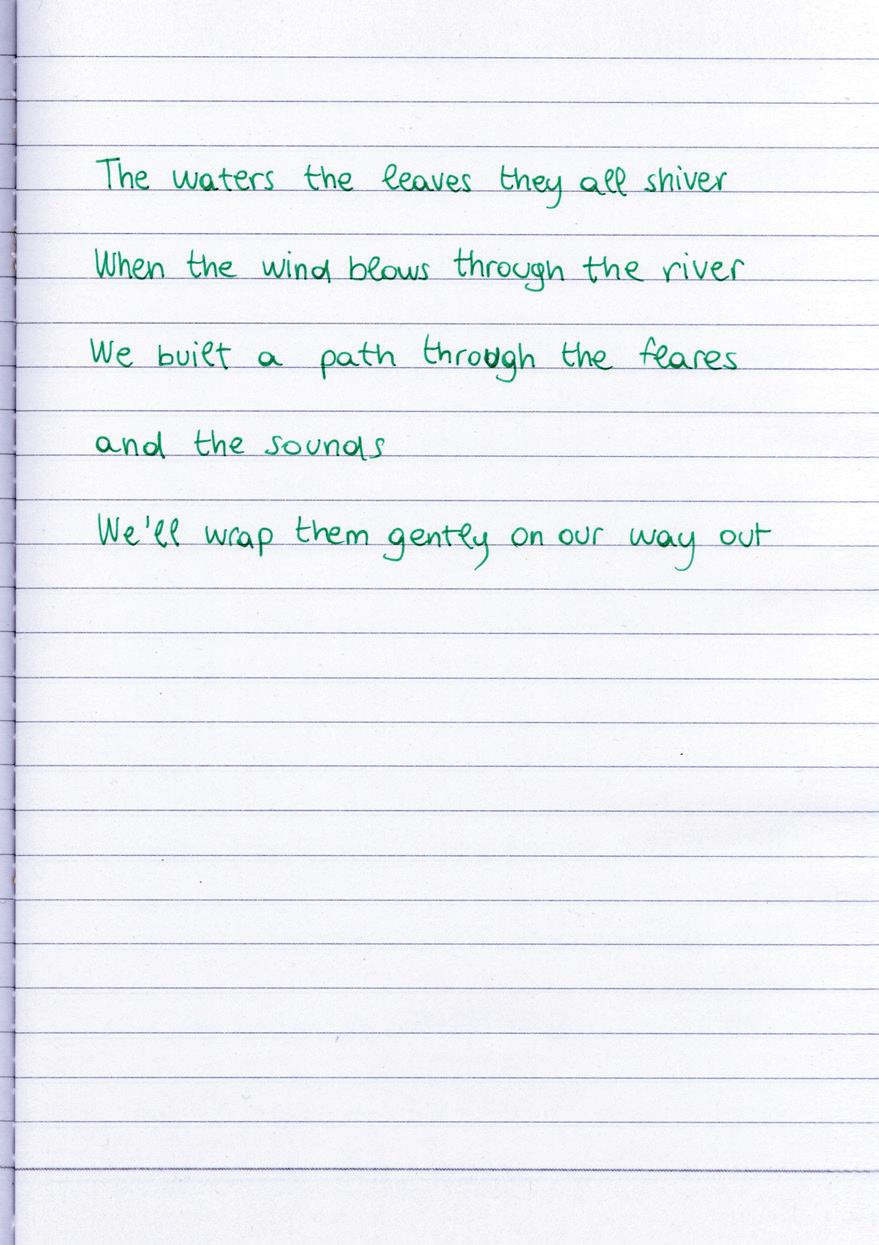 The waters the leaves they all shiver
When the wind blows through the river
We built a path through the feares
and the sounds
We'll wrap them gently on our way out